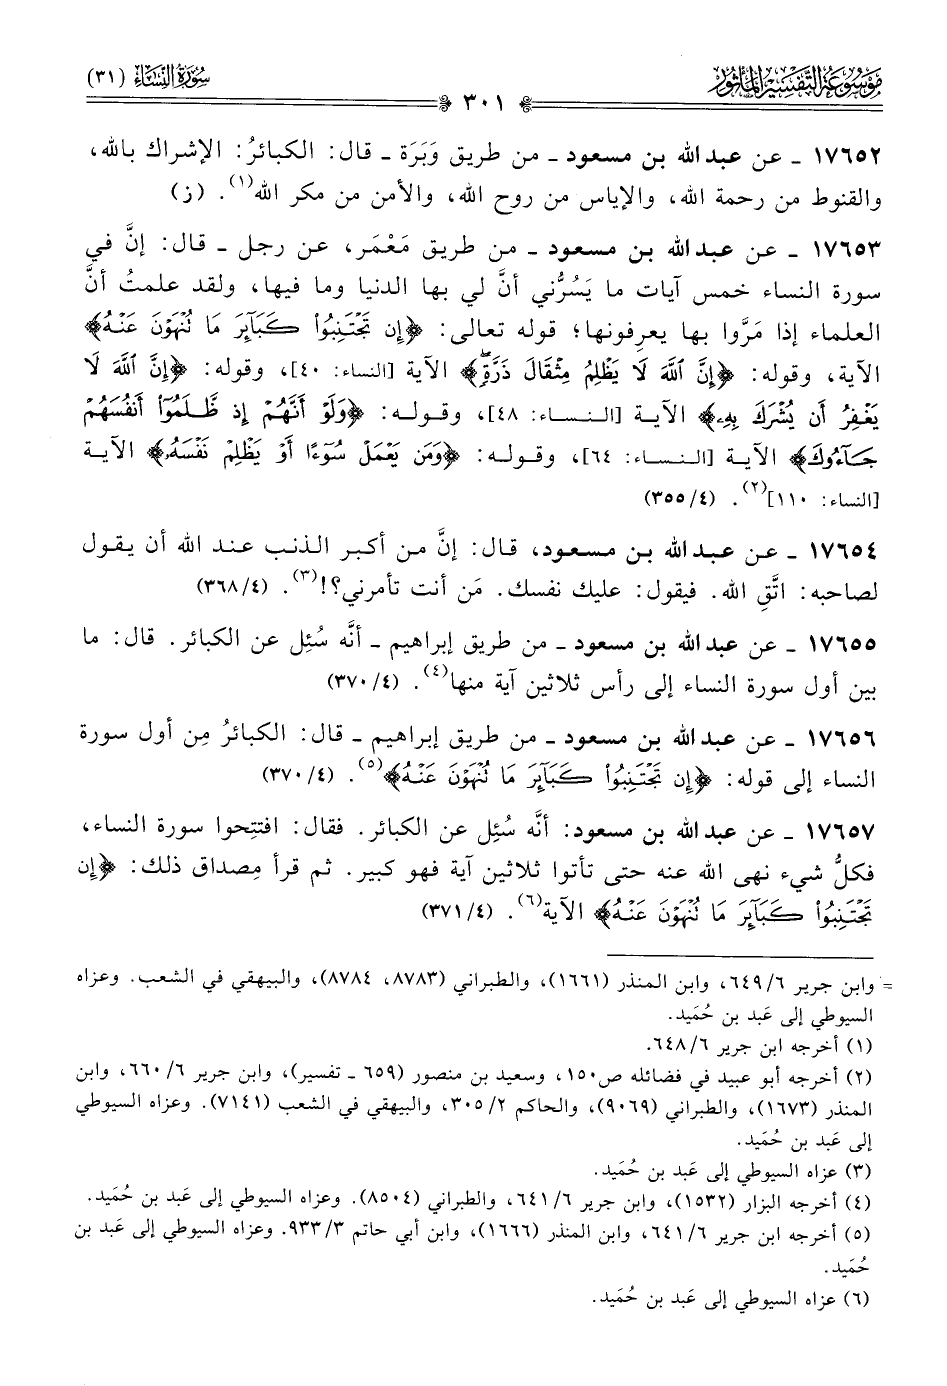 مَوْسُوعَة التَّفْسِير المَأْثُور
سُورَةُ النِّسَاءِ (٣١)
٣٠١
١٧٦٥٢ ـ عن عبد الله بن مسعود ـ من طريق وَبَرَة ـ قال: الكبائرُ: الإشراك بالله،
والقنوط من رحمة الله، والإياس من روح الله، والأمن من مكر الله(١). (ز)
١٧٦٥٣ ـ عن عبد الله بن مسعود ـ من طريق مَعْمَر، عن رجل ـ قال: إنَّ في
سورة النساء خمس آيات ما يَسُرُّني أنَّ لي بها الدنيا وما فيها، ولقد علمتُ أنَّ
العلماء إذا مَرَّوا بها يعرفونها؛ قوله تعالى: ﴿إِن تَجْتَنِبُوا۟ كَبَآئِرَ مَا تُنْهَوْنَ عَنْهُ﴾
الآية، وقوله: ﴿إِنَّ ٱللَّهَ لَا يَظْلِمُ مِثْقَالَ ذَرَّةٍۖ﴾ الآية [النساء: ٤٠]، وقوله: ﴿إِنَّ ٱللَّهَ لَا
يَغْفِرُ أَن يُشْرَكَ بِهِۦ﴾ الآية [النساء: ٤٨]، وقوله: ﴿وَلَوْ أَنَّهُمْ إِذ ظَّلَمُوٓا۟ أَنفُسَهُمْ
جَآءُوكَ﴾ الآية [النساء: ٦٤]، وقوله: ﴿وَمَن يَعْمَلْ سُوٓءًا أَوْ يَظْلِمْ نَفْسَهُۥ﴾ الآية
[النساء: ١١٠](٢). (٤/ ٣٥٥)
١٧٦٥٤ ـ عن عبد الله بن مسعود، قال: إنَّ من أكبر الذنب عند الله أن يقول
لصاحبه: اتَّقِ الله. فيقول: عليك نفسك. مَن أنت تأمرني؟!(٣). (٤/ ٣٦٨)
١٧٦٥٥ ـ عن عبد الله بن مسعود ـ من طريق إبراهيم ـ أنَّه سُئِل عن الكبائر. قال: ما
بين أول سورة النساء إلى رأس ثلاثين آية منها(٤). (٤/ ٣٧٠)
١٧٦٥٦ ـ عن عبد الله بن مسعود ـ من طريق إبراهيم ـ قال: الكبائرُ مِن أول سورة
النساء إلى قوله: ﴿إِن تَجْتَنِبُوا۟ كَبَآئِرَ مَا تُنْهَوْنَ عَنْهُ﴾(٥). (٤/ ٣٧٠)
١٧٦٥٧ ـ عن عبد الله بن مسعود: أنَّه سُئِل عن الكبائر. فقال: افتتِحوا سورة النساء،
فكلُّ شيء نهى الله عنه حتى تأتوا ثلاثين آية فهو كبير. ثم قرأ مِصداق ذلك: ﴿إِن
تَجْتَنِبُوا۟ كَبَآئِرَ مَا تُنْهَوْنَ عَنْهُ﴾ الآية(٦). (٤/ ٣٧١)
= وابن جرير ٦/ ٦٤٩، وابن المنذر (١٦٦١)، والطبراني (٨٧٨٣، ٨٧٨٤)، والبيهقي في الشعب. وعزاه
السيوطي إلى عَبد بن حُمَيد.
(١) أخرجه ابن جرير ٦/ ٦٤٨.
(٢) أخرجه أبو عبيد في فضائله ص١٥٠، وسعيد بن منصور (٦٥٩ ـ تفسير)، وابن جرير ٦/ ٦٦٠، وابن
المنذر (١٦٧٣)، والطبراني (٩٠٦٩)، والحاكم ٢/ ٣٠٥، والبيهقي في الشعب (٧١٤١). وعزاه السيوطي
إلى عَبد بن حُمَيد.
(٣) عزاه السيوطي إلى عَبد بن حُمَيد.
(٤) أخرجه البزار (١٥٣٢)، وابن جرير ٦/ ٦٤١، والطبراني (٨٥٠٤). وعزاه السيوطي إلى عَبد بن حُمَيد.
(٥) أخرجه ابن جرير ٦/ ٦٤١، وابن المنذر (١٦٦٦)، وابن أبي حاتم ٣/ ٩٣٣. وعزاه السيوطي إلى عَبد بن
حُمَيد.
(٦) عزاه السيوطي إلى عَبد بن حُمَيد.